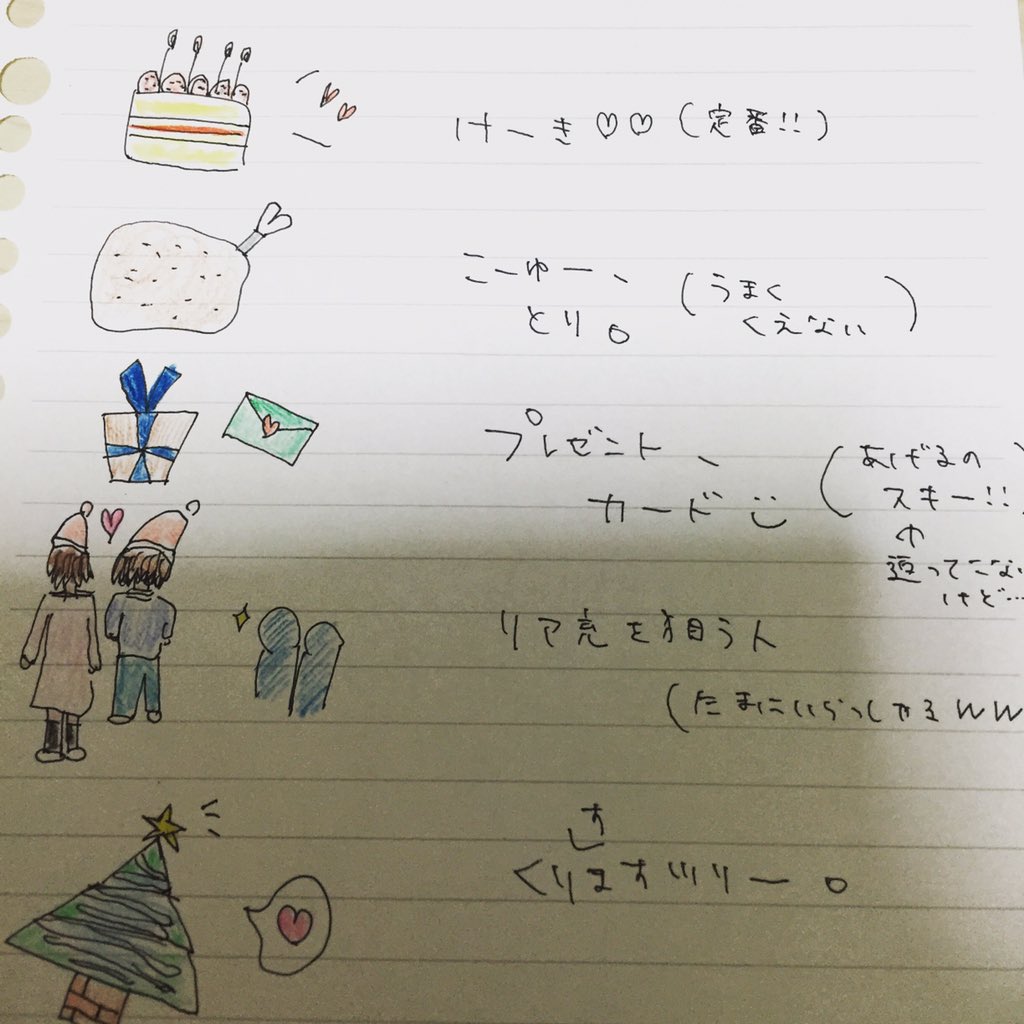 けーき♡♡(定番!!)
こーゆー、
とり。
(うまく
くえない)
プレゼント、
カード
(あげるの
スキー!!)
↑
返ってこない
けど…
リア充を狙う人
(たまにいらっしゃるww
す
くりますツリー。